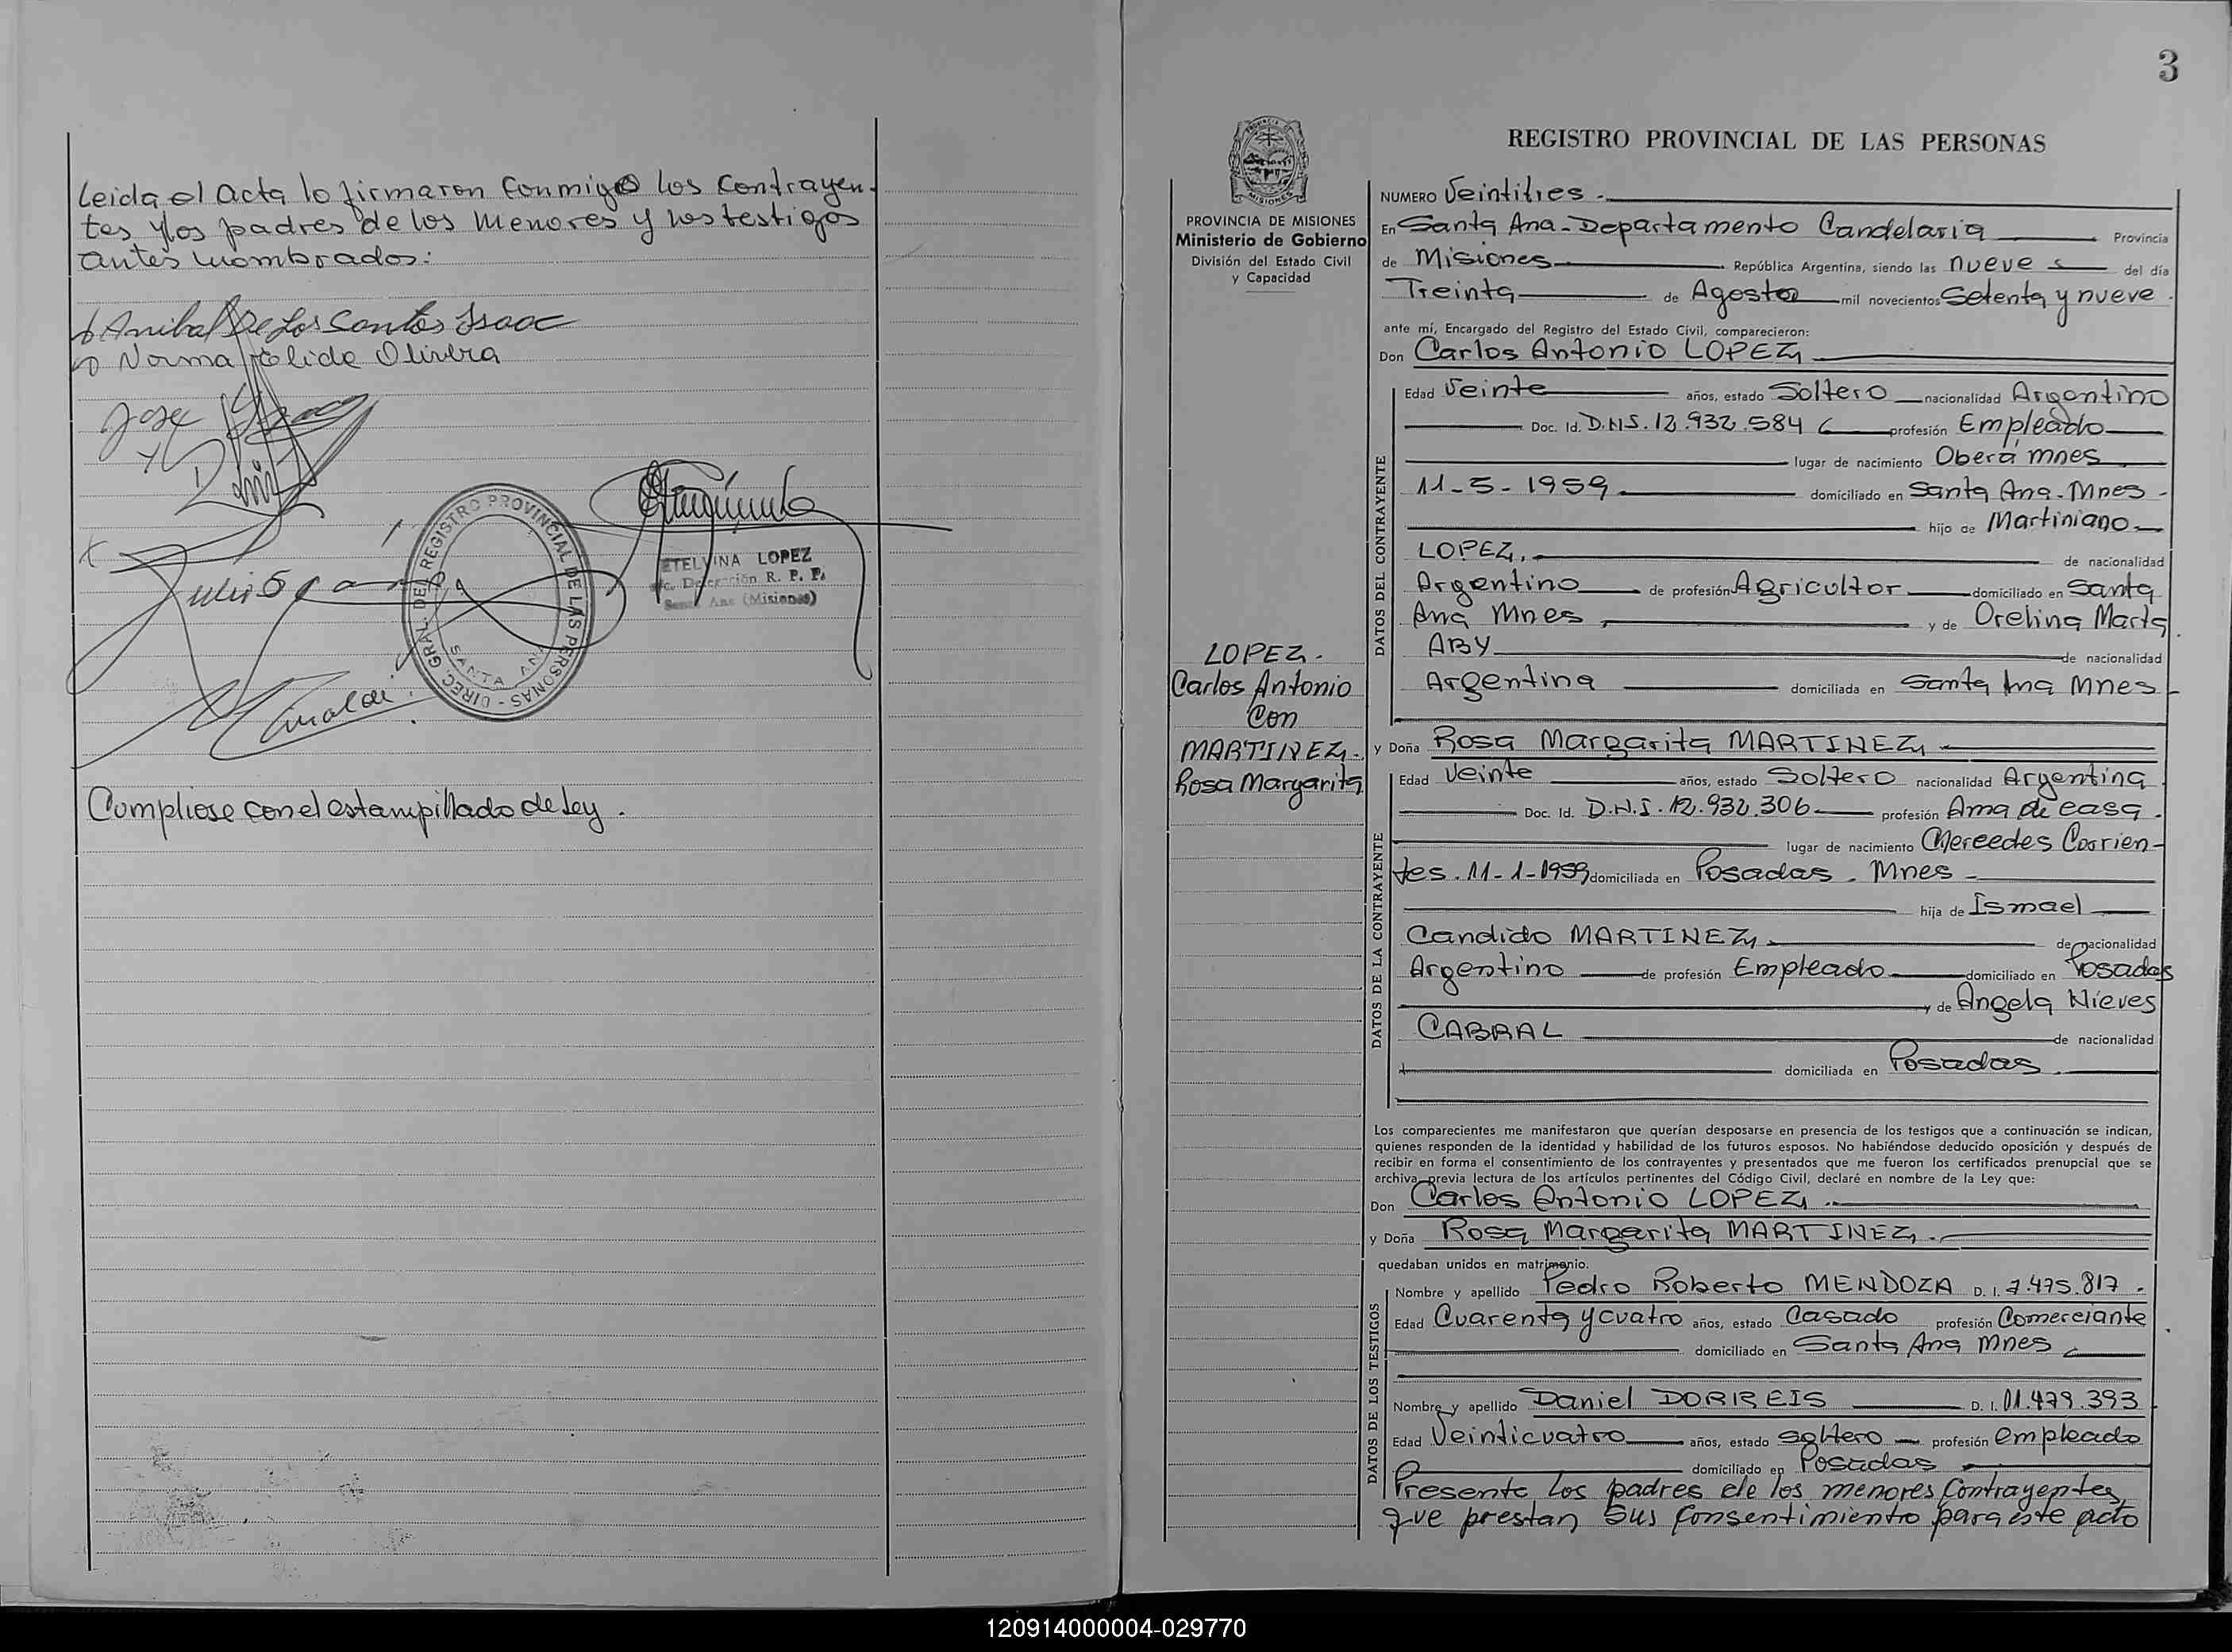 Leida el Acta lo firmaron conmigo los Contrayen-
tes y los padres de los menores y los testigos
antes nombrados.
Anibal De los Santos Isaac
Norma Olivera
Jose
REGISTRO PROVINCIAL DE LAS PERSONAS
DIREC. GRAL. DEL
SANTA ANA
ETELVINA LOPEZ
Delegación R. P. P.
Santa Ana (Misiones)
Cumpliose con el estampillado de Ley.
3
PROVINCIA DE MISIONES
Ministerio de Gobierno
División del Estado Civil
y Capacidad
LOPEZ.
Carlos Antonio
Con
MARTINEZ.
Rosa Margarita
REGISTRO PROVINCIAL DE LAS PERSONAS
NUMERO Veintitres.
En Santa Ana - Departamento Candelaria Provincia
de Misiones República Argentina, siendo las nueve del día
Treinta de Agosto mil novecientos Setenta y nueve
ante mí, Encargado del Registro del Estado Civil, comparecieron:
Don Carlos Antonio LOPEZ
DATOS DEL CONTRAYENTE
Edad Veinte años, estado Soltero nacionalidad Argentino
Doc. Id. D.N.I. 12.932.584 profesión Empleado
lugar de nacimiento Oberá mnes
11-5-1959. domiciliado en Santa Ana - Mnes -
hijo de Martiniano
LOPEZ. de nacionalidad
Argentino de profesión Agricultor domiciliado en Santa
Ana Mnes y de Orelina Marta
ABY de nacionalidad
Argentina domiciliada en Santa Ana Mnes
y Doña Rosa Margarita MARTINEZ
DATOS DE LA CONTRAYENTE
Edad Veinte años, estado Soltero nacionalidad Argentina
Doc. Id. D.N.I. 12.932.306 profesión Ama de casa.
lugar de nacimiento Mercedes Corrien-
tes. 11-1-1959 domiciliada en Posadas - Mnes -
hija de Ismael
Candido MARTINEZ de nacionalidad
Argentino de profesión Empleado domiciliado en Posadas
y de Angela Nieves
CABRAL de nacionalidad
domiciliada en Posadas.
Los comparecientes me manifestaron que querían desposarse en presencia de los testigos que a continuación se indican,
quienes responden de la identidad y habilidad de los futuros esposos. No habiéndose deducido oposición y después de
recibir en forma el consentimiento de los contrayentes y presentados que me fueron los certificados prenupcial que se
archiva previa lectura de los artículos pertinentes del Código Civil, declaré en nombre de la Ley que:
Don Carlos Antonio LOPEZ.
y Doña Rosa Margarita MARTINEZ.
quedaban unidos en matrimonio.
DATOS DE LOS TESTIGOS
Nombre y apellido Pedro Roberto MENDOZA D. I. 7.475.817.
Edad Cuarenta y cuatro años, estado Casado profesión Comerciante
domiciliado en Santa Ana Mnes
Nombre y apellido Daniel DORREIS D. I. 11.479.393
Edad Veinticuatro años, estado soltero profesión empleado
domiciliado en Posadas
Presente los padres de los menores Contrayentes
que prestan Sus Consentimiento para este acto
120914000004-029770